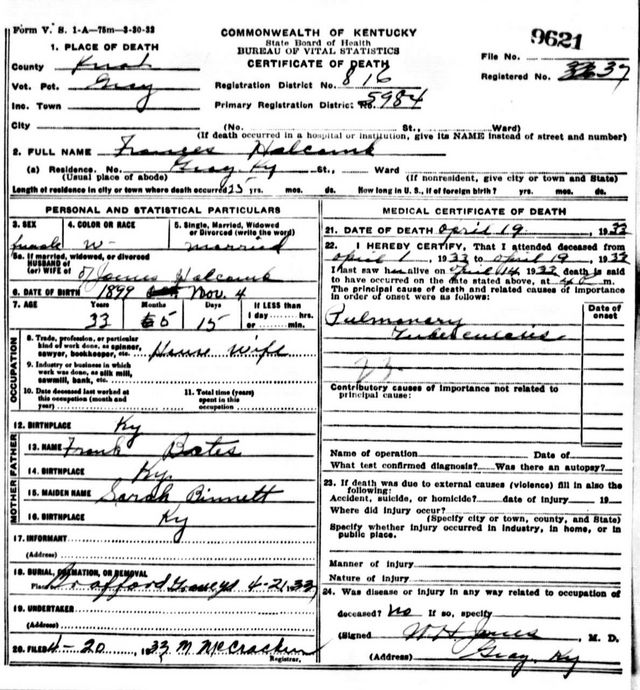 Form V. S. 1-A—75m—3-30-32
COMMONWEALTH OF KENTUCKY
State Board of Health
BUREAU OF VITAL STATISTICS
CERTIFICATE OF DEATH
9621
File No.
Registered No. 37
1. PLACE OF DEATH
County Knox
Vot. Pct. Gray
Inc. Town
Registration District No. 816
Primary Registration District No. 5984
City (No. St., Ward)
(If death occurred in a hospital or institution, give its NAME instead of street and number)
2. FULL NAME Frances Halcomb
(a) Residence. No. Gray Ky St., Ward
(Usual place of abode) (If nonresident, give city or town and State)
Length of residence in city or town where death occurred 33 yrs. mos. ds. How long in U. S., if of foreign birth? yrs. mos. ds.
PERSONAL AND STATISTICAL PARTICULARS
3. SEX
female
4. COLOR OR RACE
W
5. Single, Married, Widowed
or Divorced (write the word)
married
5a. If married, widowed, or divorced
HUSBAND of
(or) WIFE of
of James Halcomb
6. DATE OF BIRTH 1899 Nov. 4
7. AGE Years Months Days If LESS than
1 day hrs.
or min.
33 5 15
OCCUPATION
8. Trade, profession, or particular
kind of work done, as spinner,
sawyer, bookkeeper, etc. House Wife
9. Industry or business in which
work was done, as silk mill,
sawmill, bank, etc.
10. Date deceased last worked at
this occupation (month and
year)
11. Total time (years)
spent in this
occupation
12. BIRTHPLACE Ky
FATHER
13. NAME Frank Bates
14. BIRTHPLACE Ky.
MOTHER
15. MAIDEN NAME Sarah Binnett
16. BIRTHPLACE Ky
17. INFORMANT
(Address)
18. BURIAL, CREMATION, OR REMOVAL
Place 4-21 33
19. UNDERTAKER
(Address)
20. FILED 4-20, 1933 M McCracken
Registrar.
MEDICAL CERTIFICATE OF DEATH
21. DATE OF DEATH April 19, 1933
22. I HEREBY CERTIFY, That I attended deceased from
April 1, 1933 to April 19, 1933
I last saw her alive on April 14 1933 death is said
to have occurred on the date stated above, at m.
The principal cause of death and related causes of importance
in order of onset were as follows:
Date of
onset
Pulmonary
Tuberculosis
Contributory causes of importance not related to
principal cause:
Name of operation Date of
What test confirmed diagnosis? Was there an autopsy?
23. If death was due to external causes (violence) fill in also the
following:
Accident, suicide, or homicide? date of injury 19
Where did injury occur?
(Specify city or town, county, and State)
Specify whether injury occurred in industry, in home, or in
public place.
Manner of injury
Nature of injury
24. Was disease or injury in any way related to occupation of
deceased? No If so, specify
(Signed W H Jones M. D.
(Address) Gray, Ky